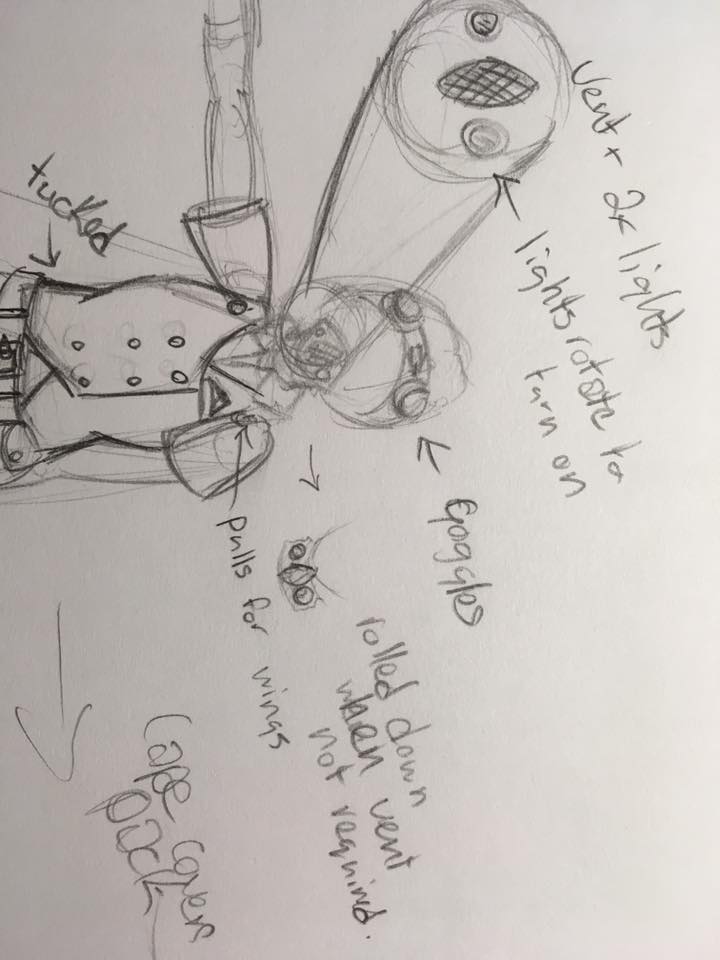 Vent + 2x lights
lights rotate to
turn on
Goggles
rolled down
when vent
not required.
pulls for wings
Cape covers
pack
tucked